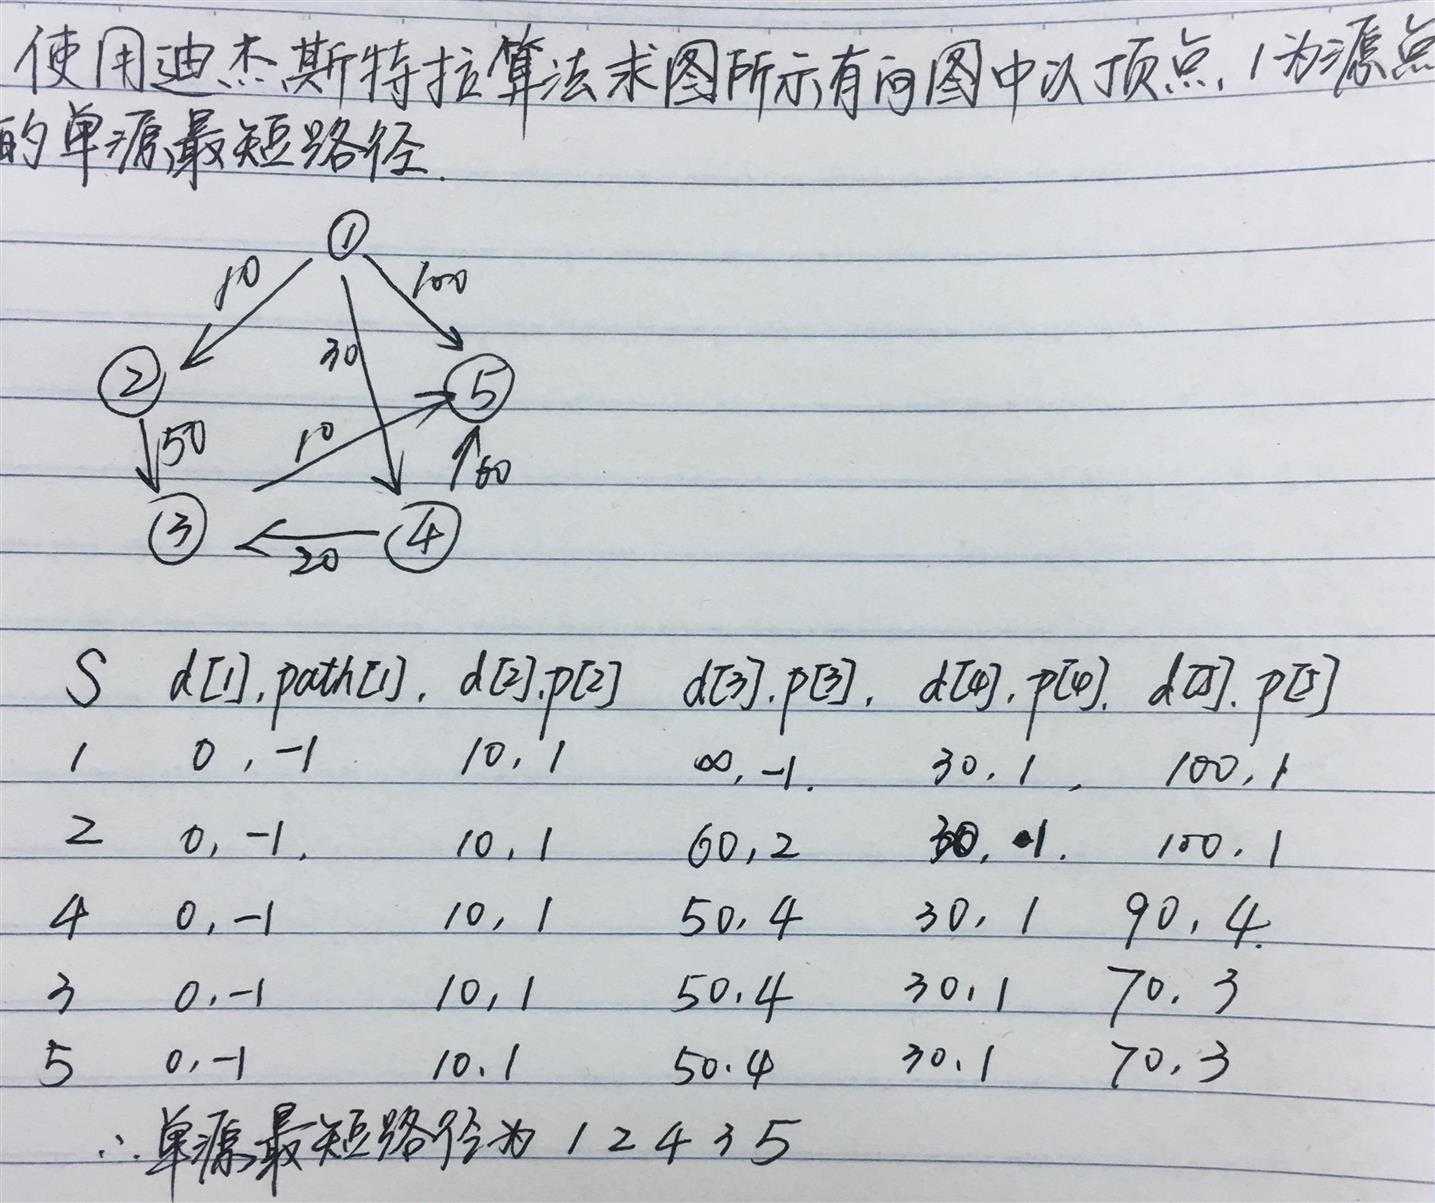 使用迪杰斯特拉算法求图所示有向图中以顶点,1为源点
的单源最短路径.
1
10
100
30
2
5
50
10
60
3
4
20
S d[1],path[1], d[2],p[2] d[3],p[3], d[4],p[4], d[5],p[5]
1 0,-1 10,1 ∞,-1. 30,1, 100,1
2 0,-1, 10,1 60,2 30,1. 100,1
4 0,-1 10,1 50,4 30,1 90,4.
3 0,-1 10,1 50,4 30,1 70,3
5 0,-1 10,1 50,4 30,1 70,3
∴单源最短路径为 1 2 4 3 5